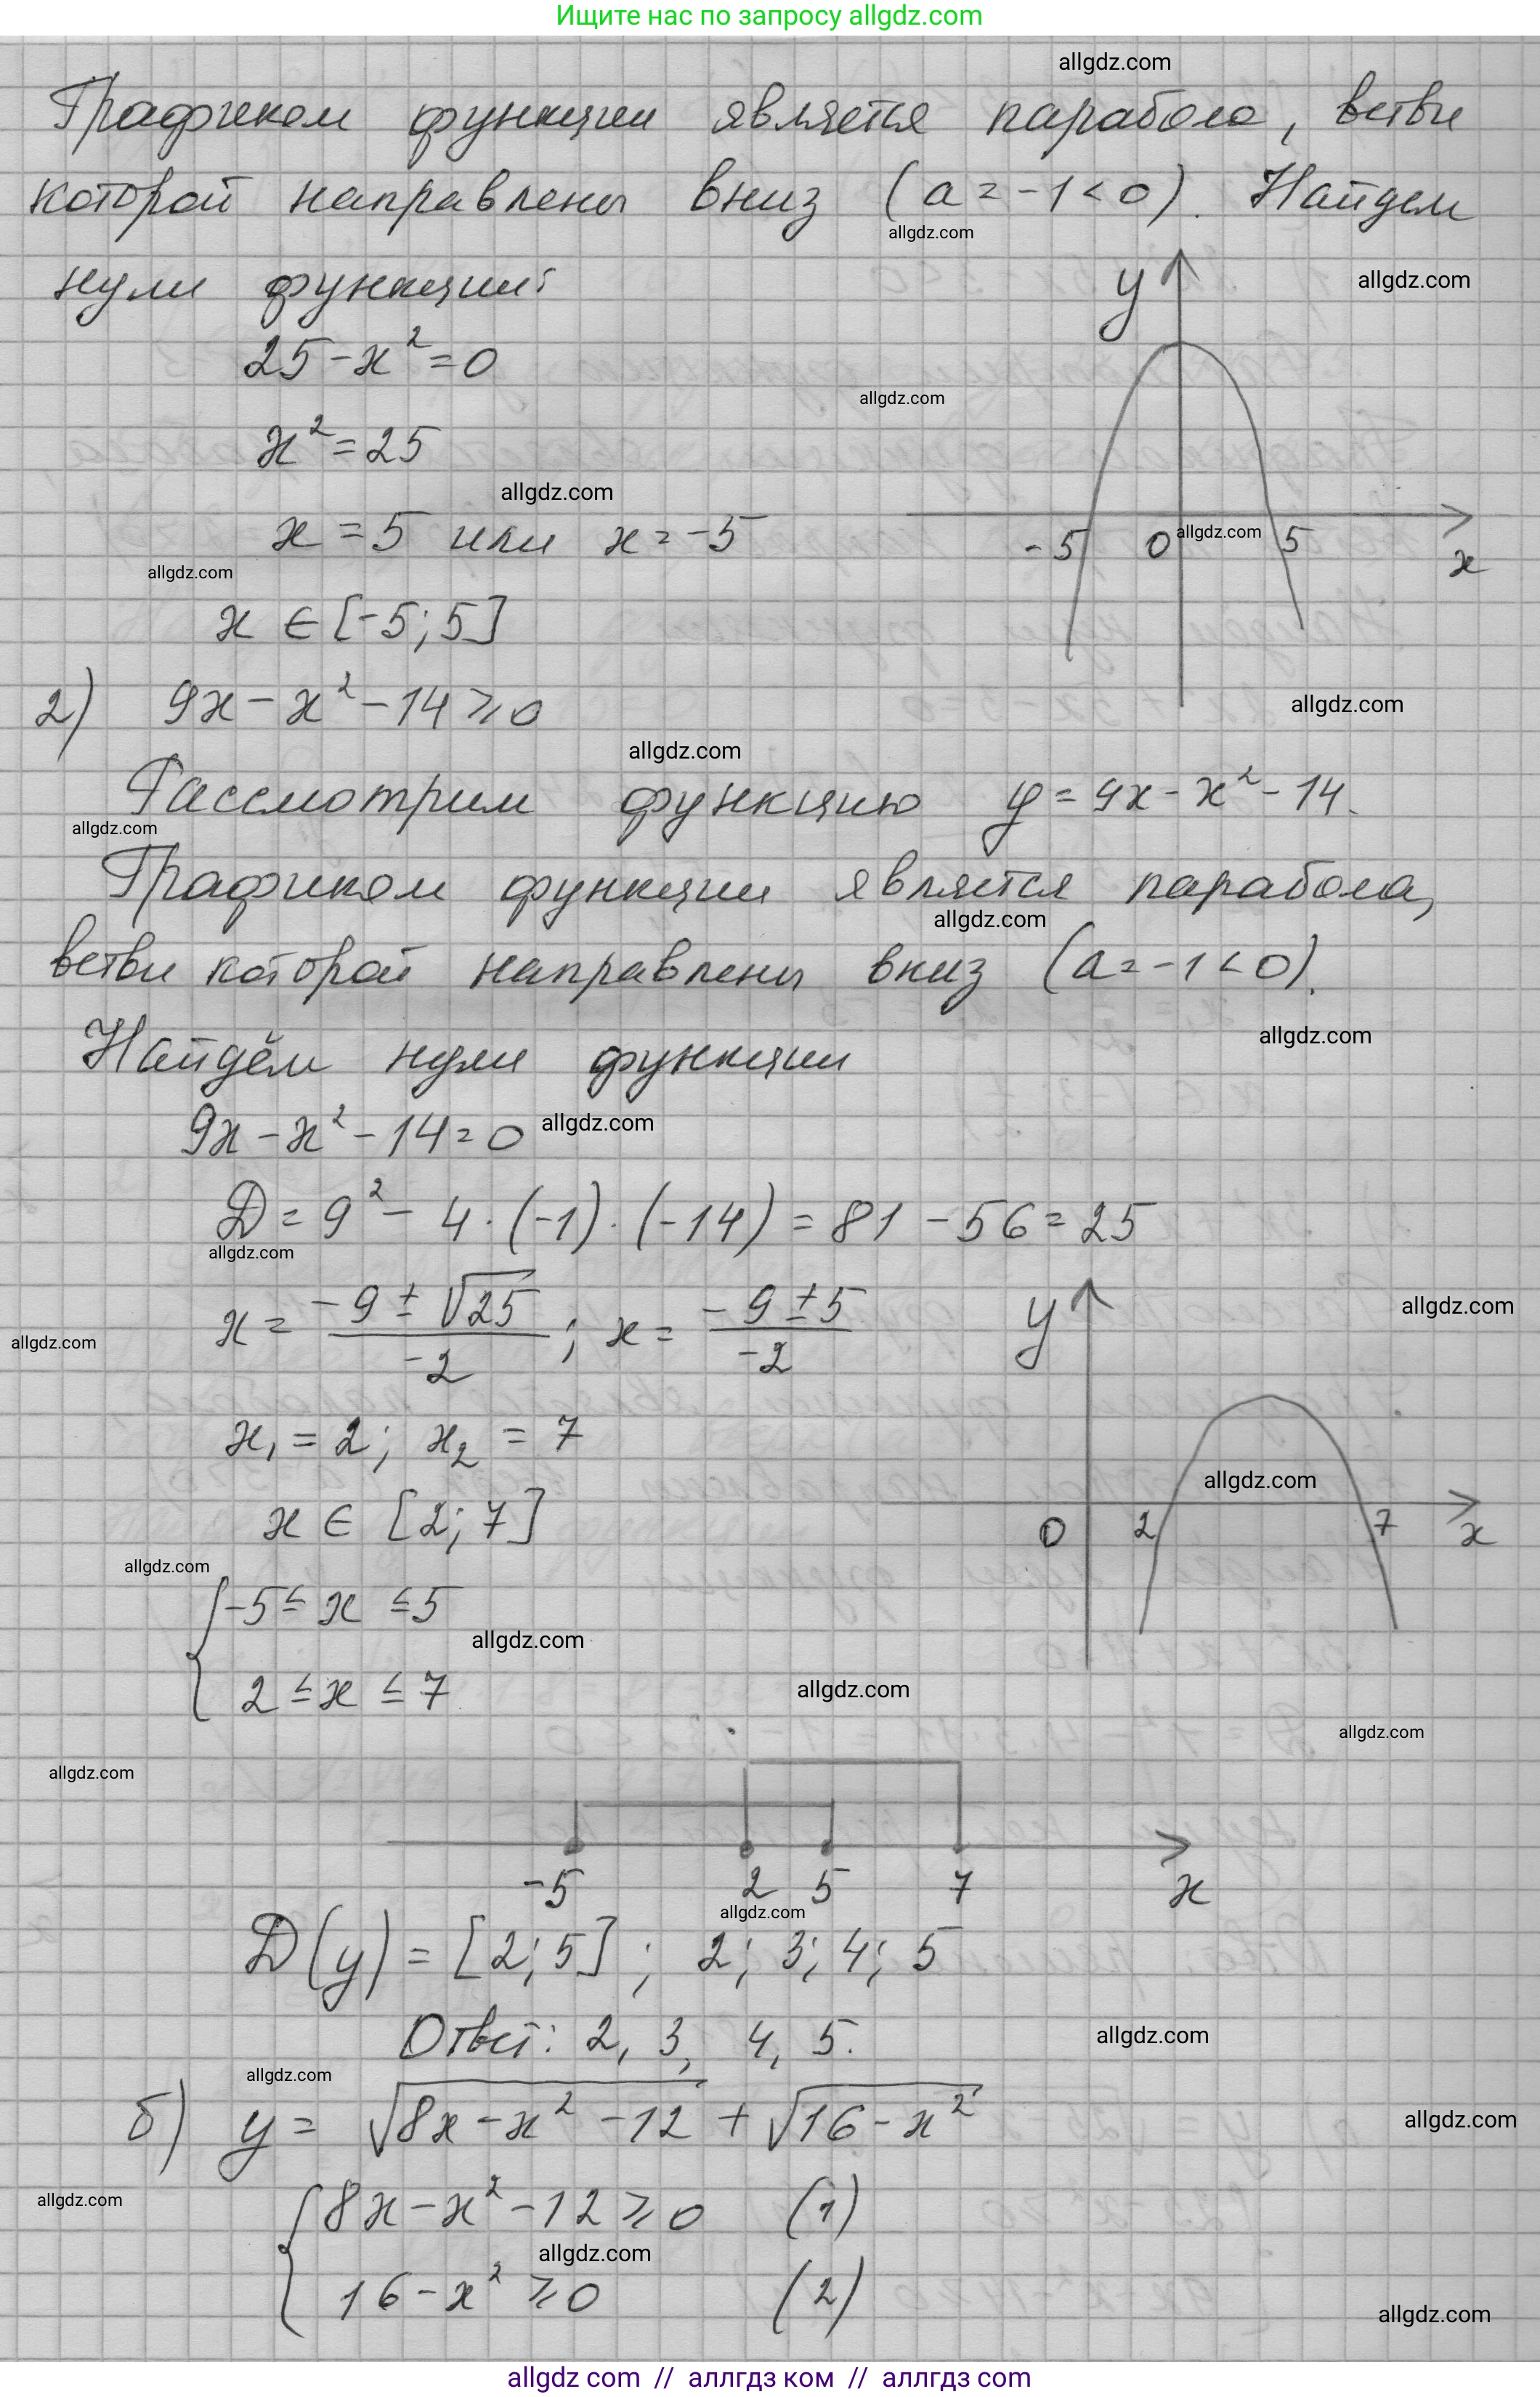 Ищите нас по запросу allgdz.com
allgdz.com
Графиком функции является парабола, ветви
которой направлены вниз (a = -1 < 0). Найдем
allgdz.com
нули функции:
y
allgdz.com
25 - x² = 0
allgdz.com
x² = 25
allgdz.com
x = 5 или x = -5
-5 0 allgdz.com 5 x
allgdz.com
x ∈ [-5; 5]
2) 9x - x² - 14 ⩾ 0
allgdz.com
allgdz.com
Рассмотрим функцию y = 9x - x² - 14.
allgdz.com
Графиком функции является парабола,
allgdz.com
ветви которой направлены вниз (a = -1 < 0).
allgdz.com
Найдём нули функции
9x - x² - 14 = 0 allgdz.com
D = 9² - 4 · (-1) · (-14) = 81 - 56 = 25
allgdz.com
x = (-9 ± √25)/(-2); x = (-9 ± 5)/(-2)
y
allgdz.com
allgdz.com
x₁ = 2; x₂ = 7
allgdz.com
x ∈ [2; 7]
0 2 7 x
allgdz.com
{ -5 ≤ x ≤ 5
allgdz.com
2 ≤ x ≤ 7
allgdz.com
allgdz.com
allgdz.com
-5 2 5 7 x
allgdz.com
D(y) = [2; 5]; 2; 3; 4; 5
Ответ: 2, 3, 4, 5.
allgdz.com
allgdz.com
б) y = √(8x - x² - 12) + √(16 - x²)
allgdz.com
allgdz.com
{ 8x - x² - 12 ⩾ 0 (1)
allgdz.com
16 - x² ⩾ 0 (2)
allgdz.com
allgdz com // аллгдз ком // аллгдз com